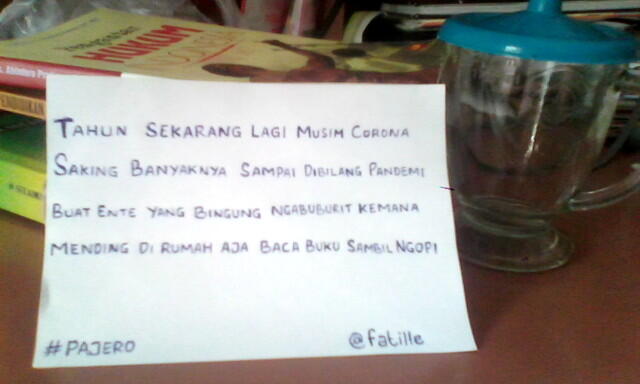 HUKUM
TAHUN SEKARANG LAGI MUSIM CORONA
SAKING BANYAKNYA SAMPAI DIBILANG PANDEMI
BUAT ENTE YANG BINGUNG NGABUBURIT KEMANA
MENDING DI RUMAH AJA BACA BUKU SAMBIL NGOPI
#PAJERO
@fatille